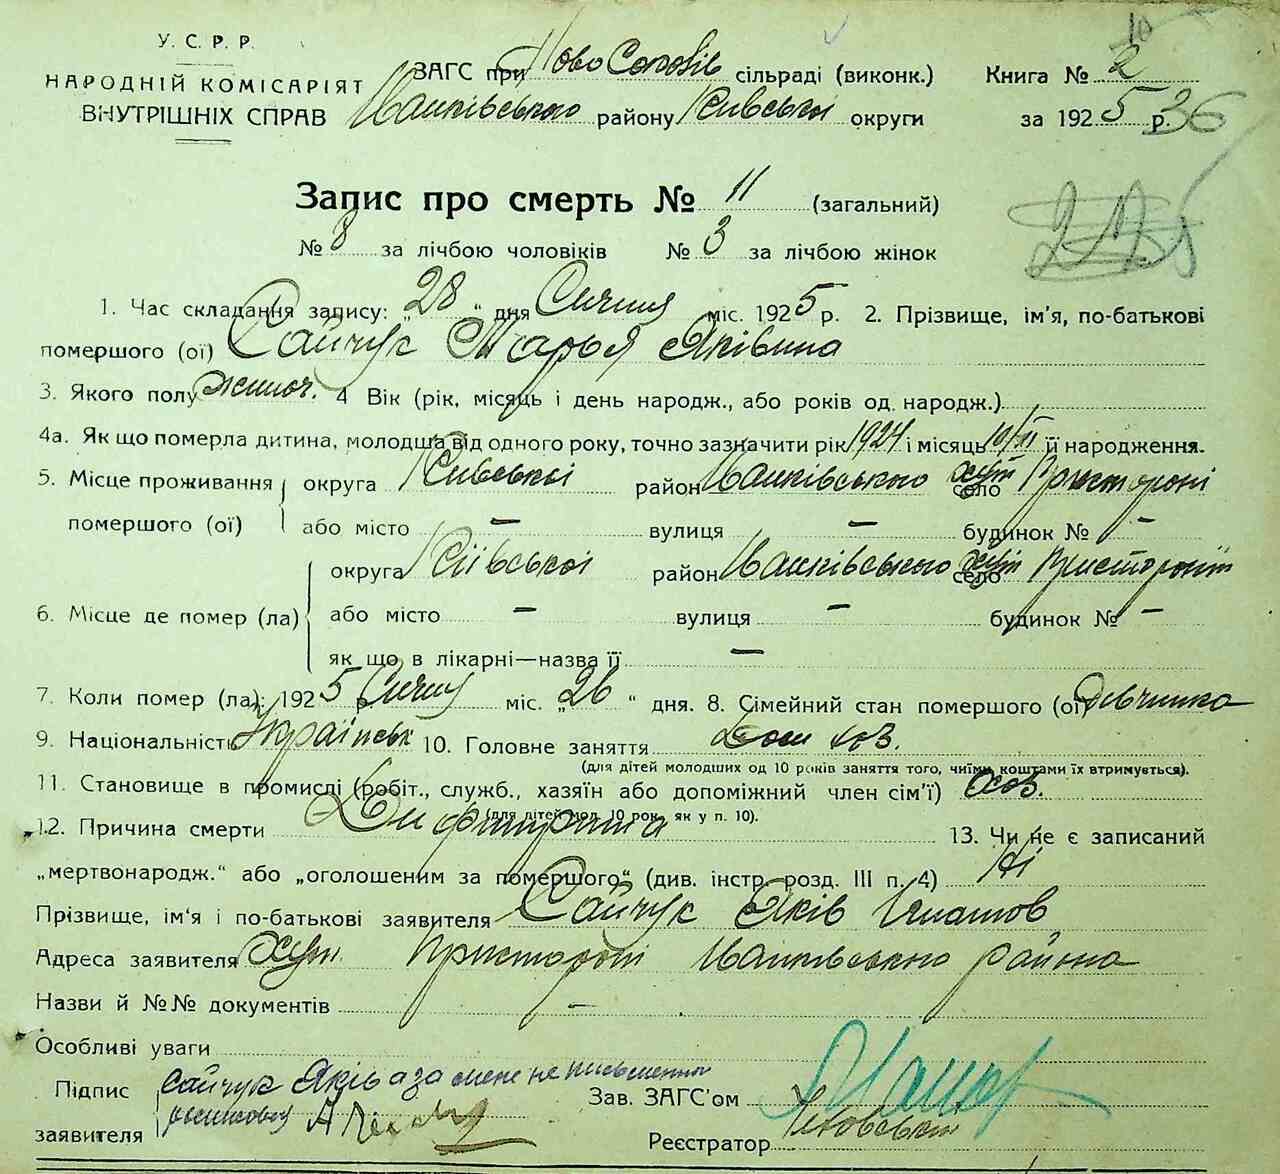 У. С. Р. Р.
НАРОДНІЙ КОМІСАРІЯТ
ВНУТРІШНІХ СПРАВ
ЗАГС при Ново Соколів сільраді (виконк.)
Іванківського району Київської округи
10
Книга № 2
за 1925 р. 36
Запис про смерть № 11 (загальний)
№ 8 за лічбою чоловіків № 3 за лічбою жінок
1. Час складання запису: „28“ дня Січня міс. 1925 р. 2. Прізвище, ім'я, по-батькові
помершого (ої) Сайчук Марья Яківна
3. Якого полу жіноч. 4 Вік (рік, місяць і день народж., або років од. народж.)
4а. Як що померла дитина, молодша від одного року, точно зазначити рік 1924 і місяць 10/XI її народження.
5. Місце проживання округа Київської район Іванківського хут село Присторонь
помершого (ої) або місто — вулиця — будинок № —
округа Київської район Іванківського хут село
6. Місце де помер (ла) або місто — вулиця — будинок № —
як що в лікарні—назва її —
7. Коли помер (ла): 1925 р Січня міс. „26“ дня. 8. Сімейний стан помершого (ої) Дівчинка
9. Національність Українськ 10. Головне заняття Дом хоз.
(для дітей молодших од 10 років заняття того, чиїми коштами їх втримується).
11. Становище в промислі (робіт., служб., хазяїн або допоміжний член сім'ї)
(для дітей мол. 10 рок. як у п. 10).
12. Причина смерти Дифтирита 13. Чи не є записаний
„мертвонародж.“ або „оголошеним за помершого“ (див. інстр. розд. III п. 4) Ні
Прізвище, ім'я і по-батькові заявителя Сайчук Яків Игнатов
Адреса заявителя хут. Присторонь Іванківського района
Назви й №№ документів —
Особливі уваги
Підпис Сайчук Яків а за мене не письменного
заявителя росписався
Зав. ЗАГС'ом
Реєстратор